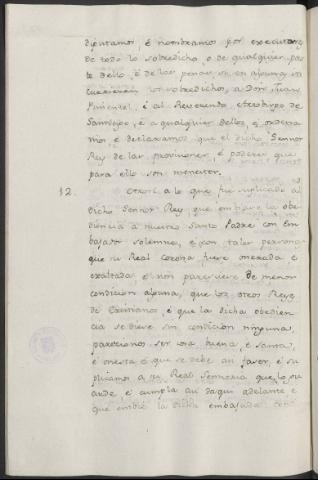 diputamos, é nombramos por executores
de todo lo sobredicho, o de qualquier par
te dello, é de las penas, si en alguna in
currieren los sobredichos, a Don Juan
Pimentel, é al Reverendo Arzobispo de
Santiago, é a qualquier dellos, é ordena
mos é declaramos que el dicho Señor
Rey dé las provisiones, é poderes que
para ello son menester.
12. Otrosi a lo que fue suplicado al
dicho Señor Rey que embiase la obe
diencia a nuestro Santo Padre con Em
bajada solemne, é con tales personas
que su Real corona fuese onrada é
exaltada, é non pareciere de menor
condicion alguna, que los otros Reyes
de Cristianos, é que la dicha obedien
cia se diese sin condicion ninguna,
parecionos ser cosa buena, é santa,
é onesta é que se debe au facer, é su
plicamos a su Real Señoria que lo gu
arde é cumpla au daqui adelante é
que embie la dicha embajada con